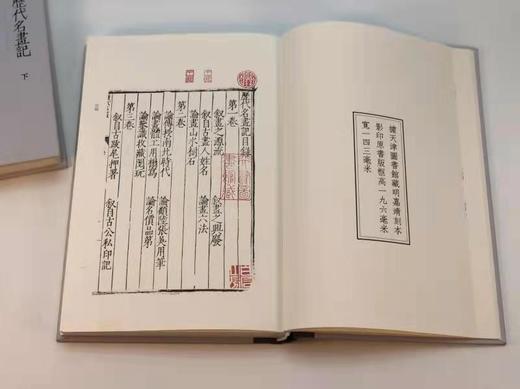 歷代名畫記
下
據天津圖書館藏明嘉靖刻本
影印原書版框高一九六毫米
寬一四三毫米
歷代名畫記目錄
第一卷
叙畫之源流 叙畫之興廢
叙自古畫人姓名 論畫六法
論畫山水樹石
第二卷
論傳授南北時代 論顧陸張吳用筆
論畫體工用搨寫 論名價品第
論鑒識收藏閱玩
第三卷
叙自古跋尾押署 叙自古公私印記